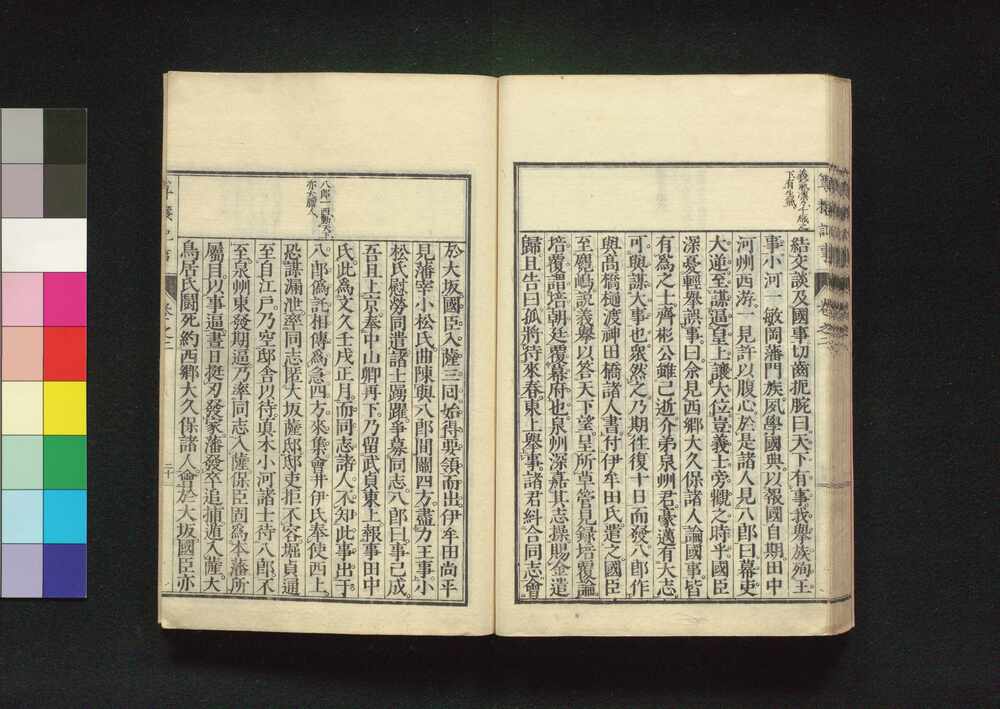 義氣凜々千歲之
下有生氣
結交談及國事切齒扼腕曰天下有事我擧族殉王
事小河一敏岡藩門族夙學國典以報國自期田中
河州西游一見許以腹心於是諸人見八郎曰幕吏
大逆至謀逼皇上讓大位豈義士旁觀之時乎國臣
深憂輕擧誤事曰余見西鄉大久保諸人論國事皆
有爲之士齊彬公雖已逝介弟泉州君豪邁有大志
可與謀大事也衆然之乃期往復十日而發八郎作
與高橋樋渡神田橋諸人書付伊牟田氏遣之國臣
至麑嶋說義擧以答天下望呈所草管見錄培覆論
培覆謂培朝廷覆幕府也泉州深嘉其志操賜金遣
歸且告曰孤將待來春東上擧事諸君糾合同志會
八郎一西動天下
亦大膽人
於大坂國臣入薩三回始得要領而出伊牟田尚平
見藩宰小松氏曲陳與八郎間關四方盡力王事小
松氏慰勞同遣諸士踴躍爭募同志八郎曰事已成
吾且上京奉中山卿再下乃留武貞東上報事田中
氏此爲文久壬戌正月而同志諸人不知此事出于
八郎僞託相傳爲急四方來集會井伊氏奉使西上
恐謀漏泄率同志匿大坂薩邸邸吏拒不容堀貞通
至自江戶乃空邸舍以待眞木小河諸士待八郎不
至泉州東發期逼乃率同志入薩保臣固爲本藩所
屬目以事逼晝日挺刃發家藩發卒追捕遁入薩大
鳥居氏鬪死約西鄉大久保諸人會於大坂國臣亦
卷之三
二十